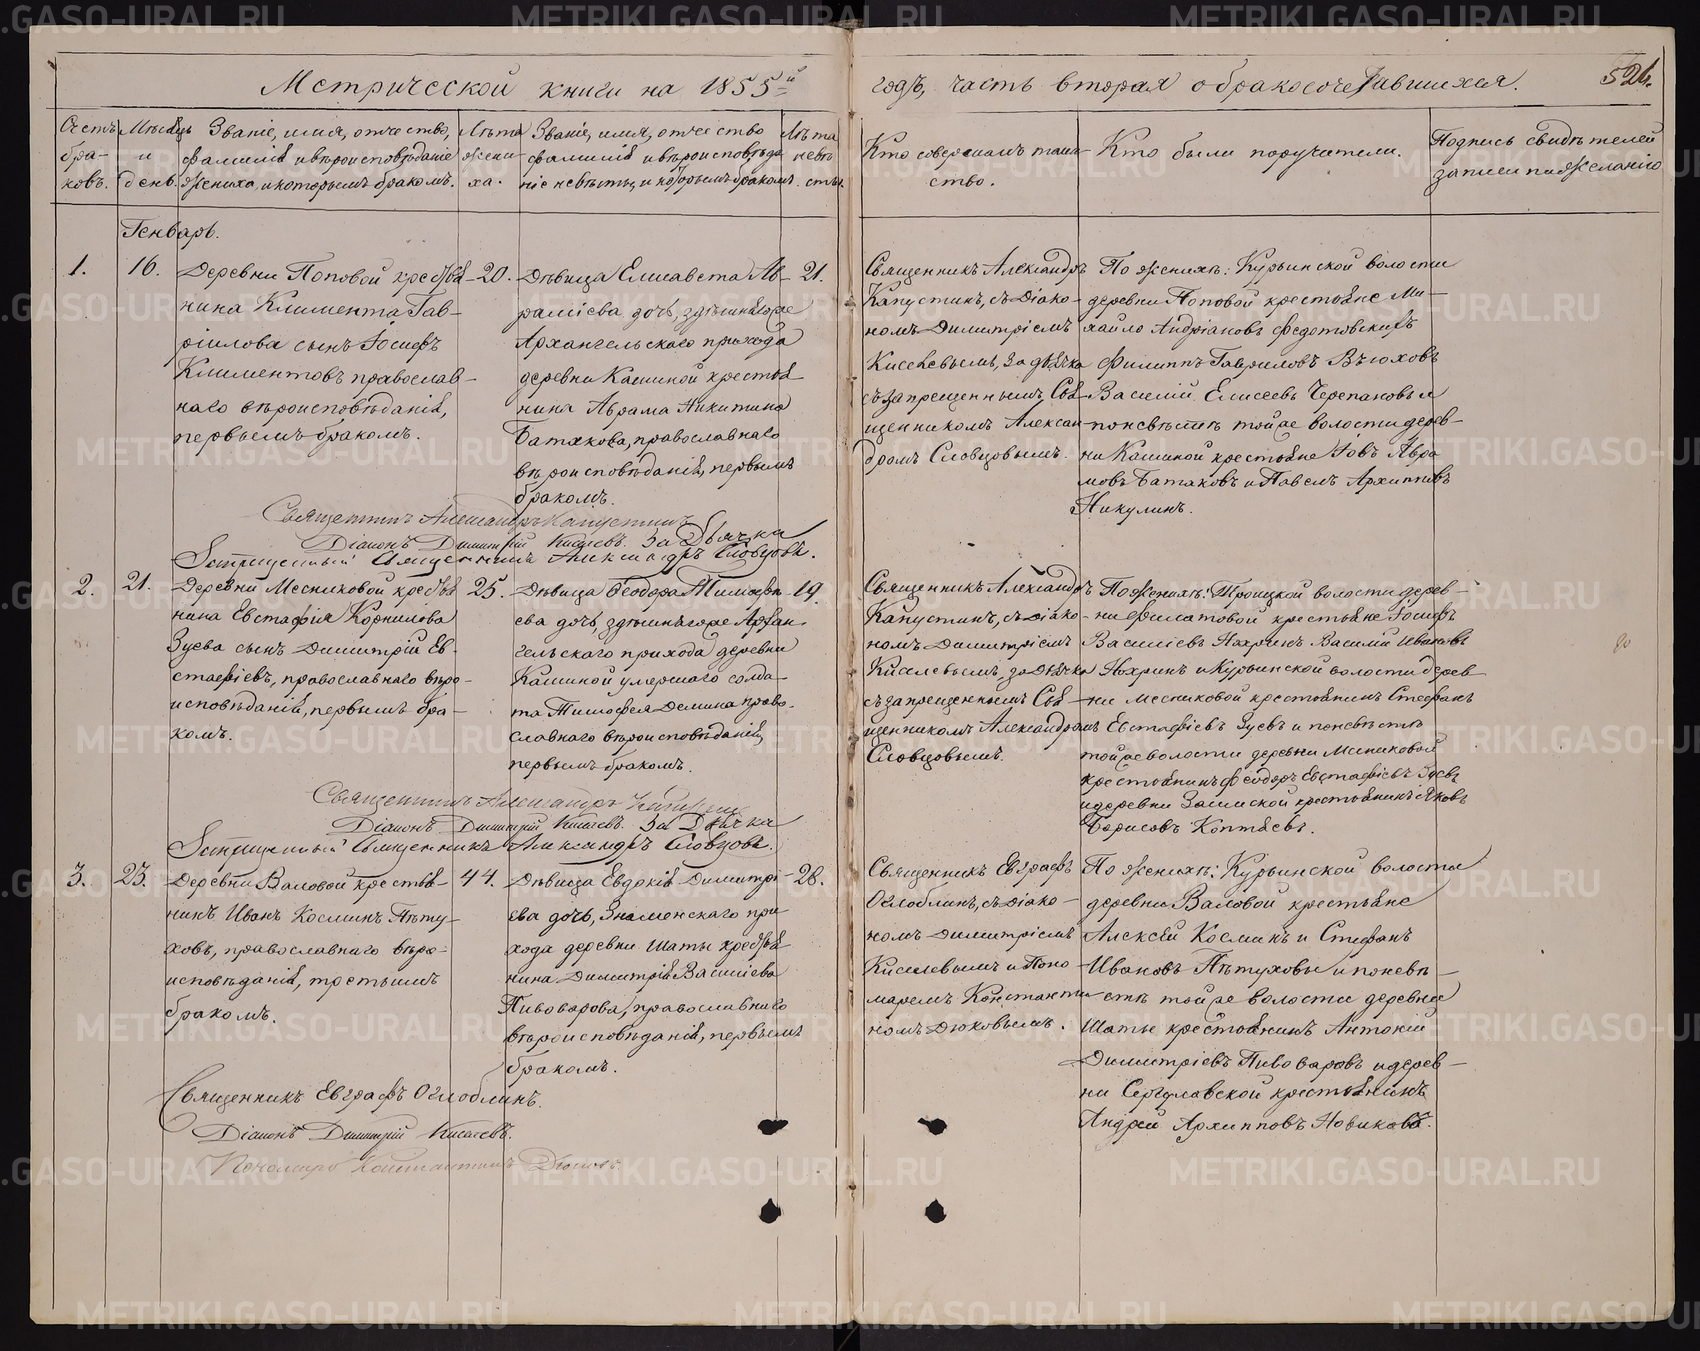 Метрической книги на 1855й
годъ, часть вторая о бракосочетавшихся.
526.
Счетъ бра- ковъ.
Мѣсяцъ и день.
Званіе, имя, отчество,
фамилія и вѣроисповѣданіе
жениха, и которымъ бракомъ.
Лѣта жени- ха.
Званіе, имя, отчество
фамилія и вѣроисповѣда-
ніе невѣсты, и которымъ бракомъ.
Лѣта невѣ- сты.
Кто совершалъ таин-
ство.
Кто были поручители.
Подпись свидѣтелей
записи по желанію
Генварь.
1.
16.
Деревни Поповой крестья-
нина Климента Гав-
ріилова сынъ Іосифъ
Климентовъ православ-
наго вѣроисповѣданія,
первымъ бракомъ.
20.
Дѣвица Елисавета Ав-
раміева дочь, здѣшняго же
Архангельскаго прихода
деревни Кашиной крестья-
нина Аврама Никитина
Батакова, православнаго
вѣроисповѣданія, первымъ
бракомъ.
21.
Священникъ Александръ
Капустинъ, съ Діако-
номъ Димитріемъ
Киселевымъ, за дьячка
съ запрещеннымъ Свя-
щенникомъ Алексан-
дромъ Словцовымъ.
По женихѣ: Курьинской волости
деревни Поповой крестьяне Ми-
хайло Андріановъ Федотовскихъ
Филиппъ Гавриловъ Вѣюховъ
Василій Елисеевъ Черепановъ и
по невѣстѣ той же волости дерев-
ни Кашиной крестьяне Іовъ Авра-
мовъ Батаковъ и Павелъ Архиповъ
Никулинъ.
Священникъ Александръ Капустинъ
Діаконъ Димитрій Киселевъ. За Дьячка
Запрещенный Священникъ Александръ Словцовъ.
2.
21.
Деревни Месниковой крестья-
нина Евстафія Корнилова
Зуева сынъ Димитрій Ев-
стафіевъ, православнаго вѣро-
исповѣданія, первымъ бра-
комъ.
25.
Дѣвица Феодора Тимофѣ-
ева дочь, здѣшняго же Архан-
гельскаго прихода деревни
Кашиной умершаго солда-
та Тимофея Демина право-
славнаго вѣроисповѣданія,
первымъ бракомъ.
19.
Священникъ Александръ
Капустинъ, съ Діако-
номъ Димитріемъ
Киселевымъ, за дьячка
съ запрещеннымъ Свя-
щенникомъ Александромъ
Словцовымъ.
По женихѣ: Троицкой волости дерев-
ни Филатовой крестьяне Іосифъ
Василіевъ Нохринъ Василій Ивановъ
Нохринъ и Курьинской волости дерев-
ни Месниковой крестьянинъ Стефанъ
Евстафіевъ Зуевъ и по невѣстѣ
той же волости деревни Месниковой
крестьянинъ Феодоръ Евстафіевъ Зуевъ
и деревни Заимской крестьянинъ Яковъ
Борисовъ Коптяевъ.
Священникъ Александръ Капустинъ
Діаконъ Димитрій Киселевъ. За Дьячка
Запрещенный Священникъ Александръ Словцовъ.
3.
23.
Деревни Валовой крестья-
нинъ Иванъ Косминъ Пѣту-
ховъ, православнаго вѣро-
исповѣданія, третьимъ
бракомъ.
44.
Дѣвица Евдокія Димитрі-
ева дочь, Знаменскаго при-
хода деревни Шаты крестья-
нина Димитрія Василіева
Пивоварова, православнаго
вѣроисповѣданія, первымъ
бракомъ.
28.
Священникъ Евграфъ
Оглоблинъ, съ Діако-
номъ Димитріемъ
Киселевымъ и Поно-
маремъ Константи-
номъ Дюковымъ.
По женихѣ: Курьинской волости
деревни Валовой крестьяне
Алексѣй Косминъ и Стефанъ
Ивановъ Пѣтуховы и по невѣ-
стѣ той же волости деревни
Шаты крестьянинъ Антоній
Димитріевъ Пивоваровъ и дерев-
ни Сергулавской крестьянинъ
Андрей Архипповъ Новиковъ.
Священникъ Евграфъ Оглоблинъ.
Діаконъ Димитрій Киселевъ.
Пономарь Константинъ Дюковъ.
METRIKI.GASO-URAL.RU